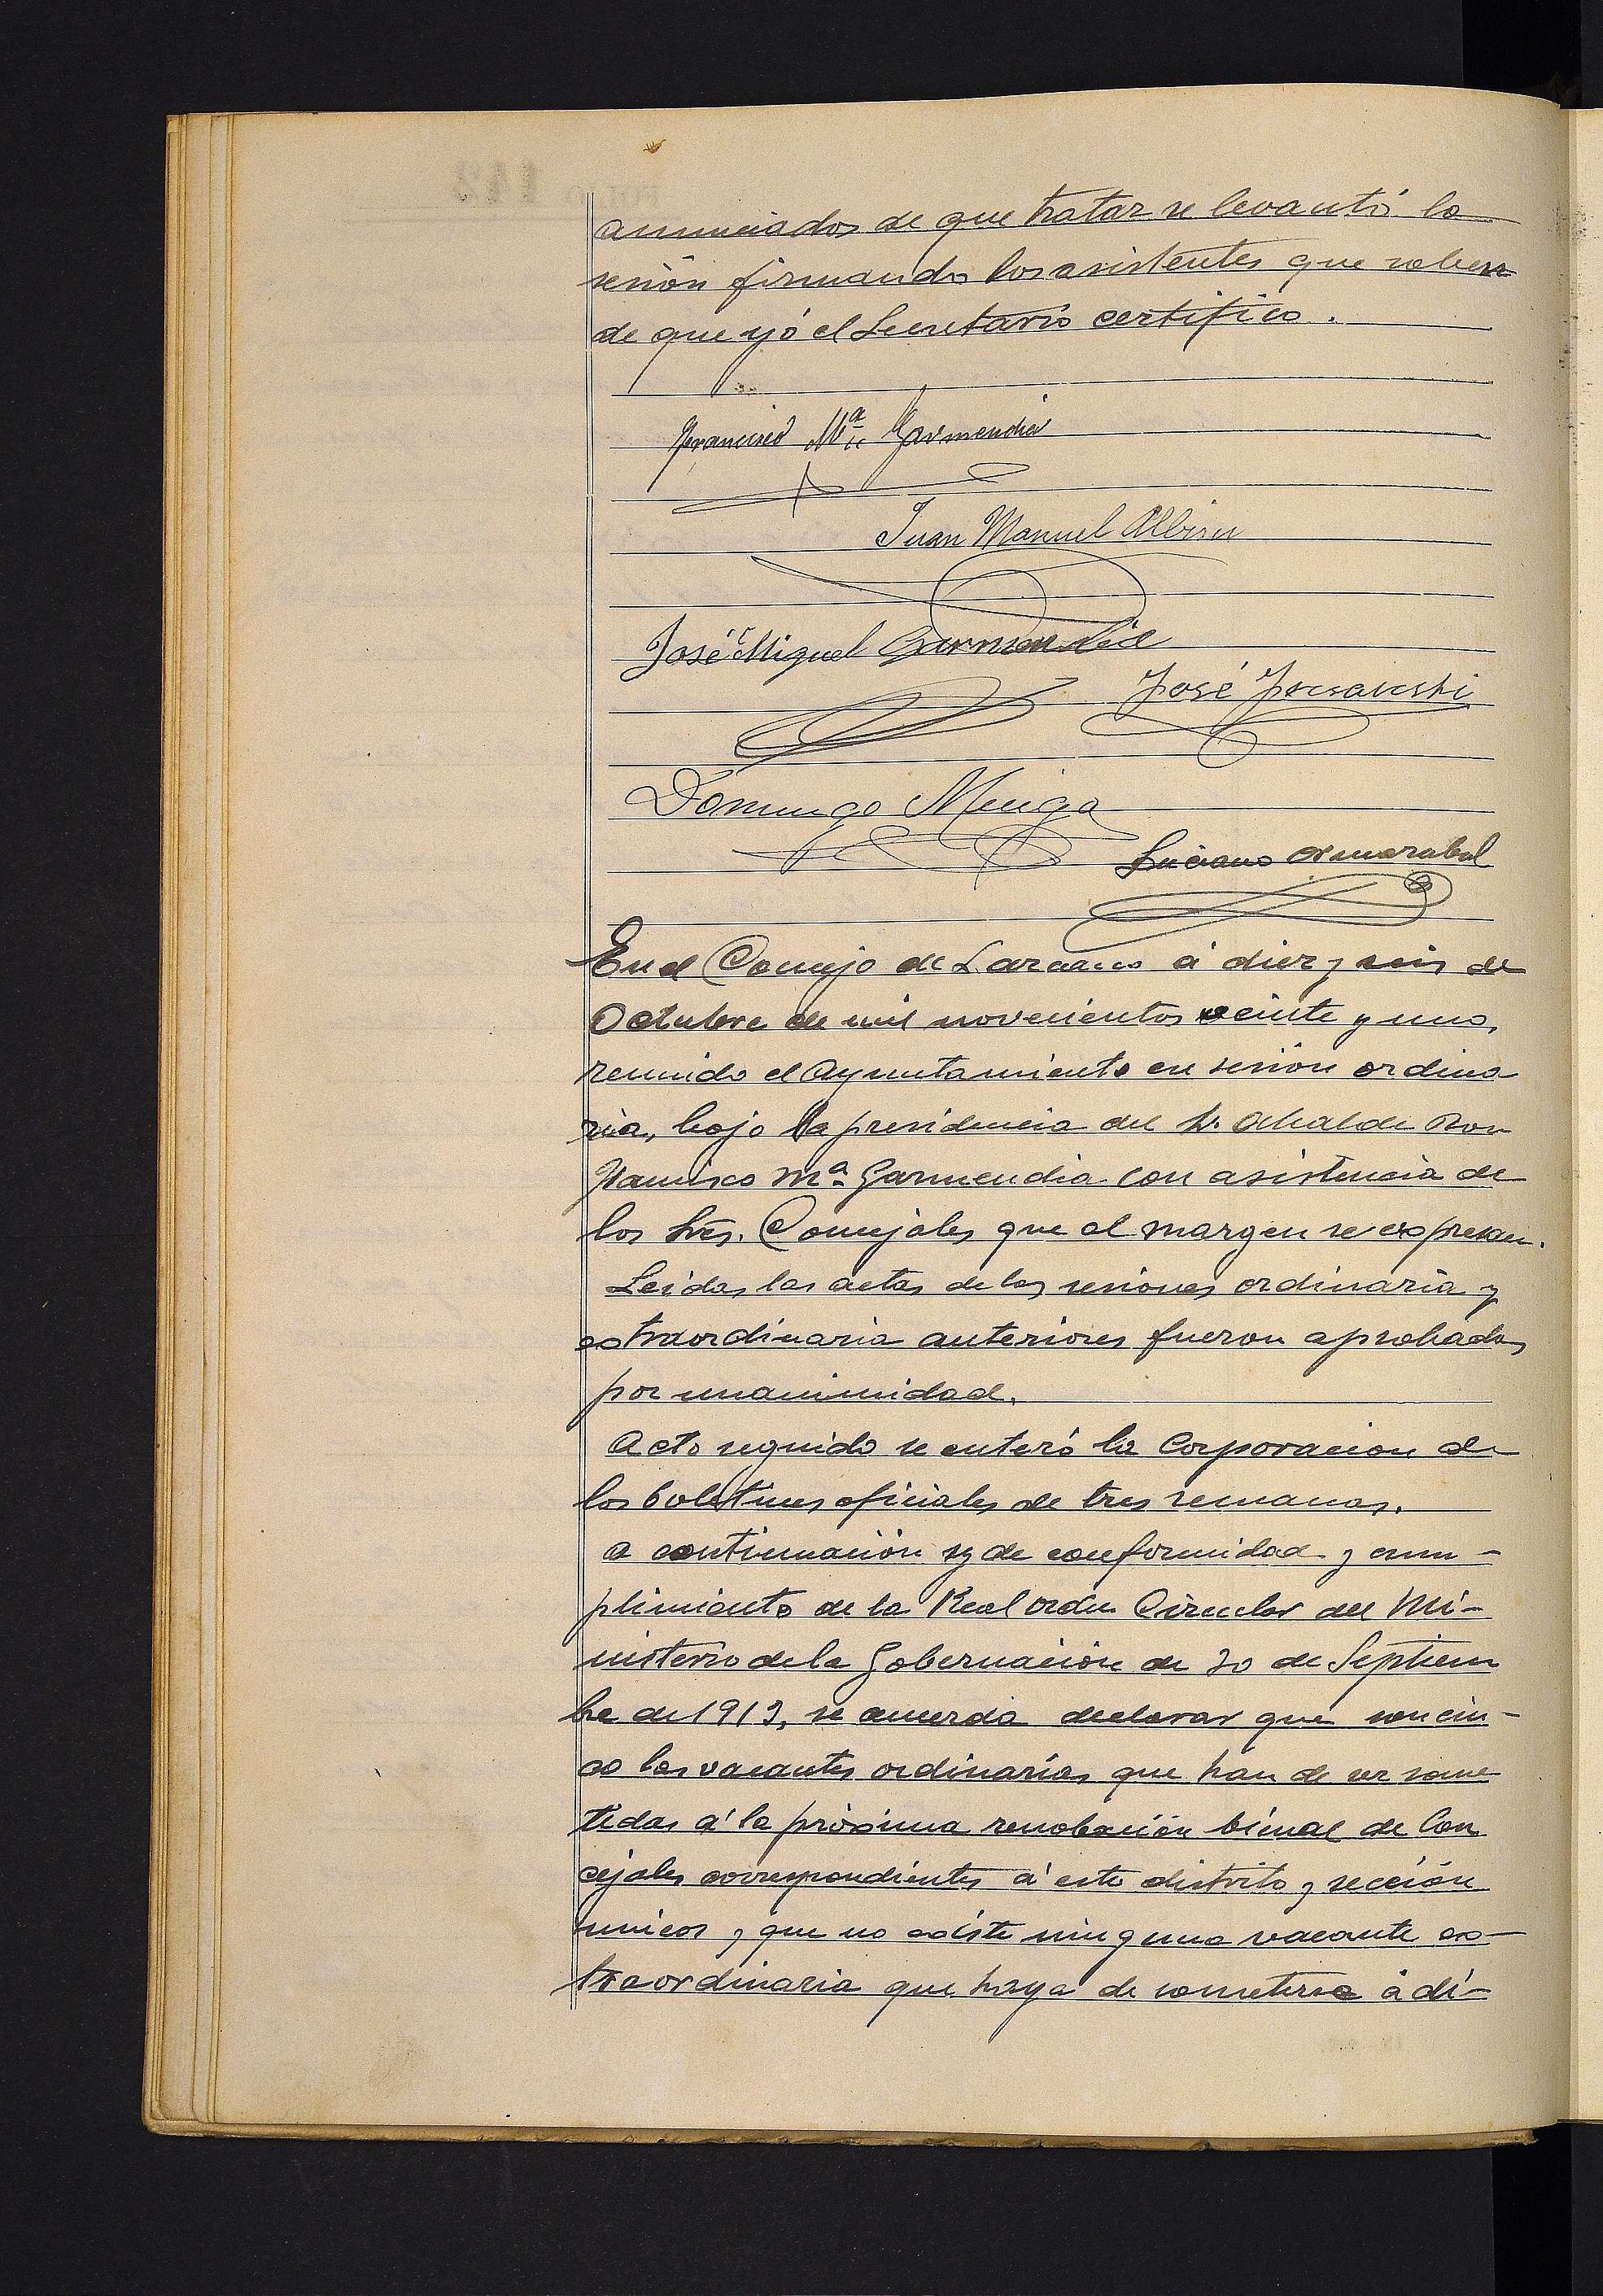 anunciados de que tratar se levantó la
sesión firmando los asistentes que saben
de que yó el Secretario certifico.
Francisco Mª Garmendia
Juan Manuel Albisu
José Miguel Garmendia
José
Domingo
Luciano
En el Concejo de Lazcano á diez y seis de
Octubre de mil novecientos veinte y uno,
reunido el Ayuntamiento en sesión ordina
ria, bajo la presidencia del Sr. Alcalde Don
Francisco Mª Garmendia con asistencia de
los Sres. Concejales que al margen se expresan.
Leidas las actas de las sesiones ordinaria y
extraordinaria anteriores fueron aprobadas
por unanimidad.
Acto seguido se enteró la Corporacion de
los boletines oficiales de tres semanas.
A continuación y de conformidad y cum-
plimiento de la Real orden Circular del Mi-
nisterio de la Gobernación de 30 de Septiem
bre de 1913, se acuerda declarar que son cin-
co las vacantes ordinarias que han de ser some
tidas á la próxima renobación bienal de Con
cejales correspondientes á este distrito y sección
unicos y que no existe ninguna vacante ex-
traordinaria que haya de someterse á di-